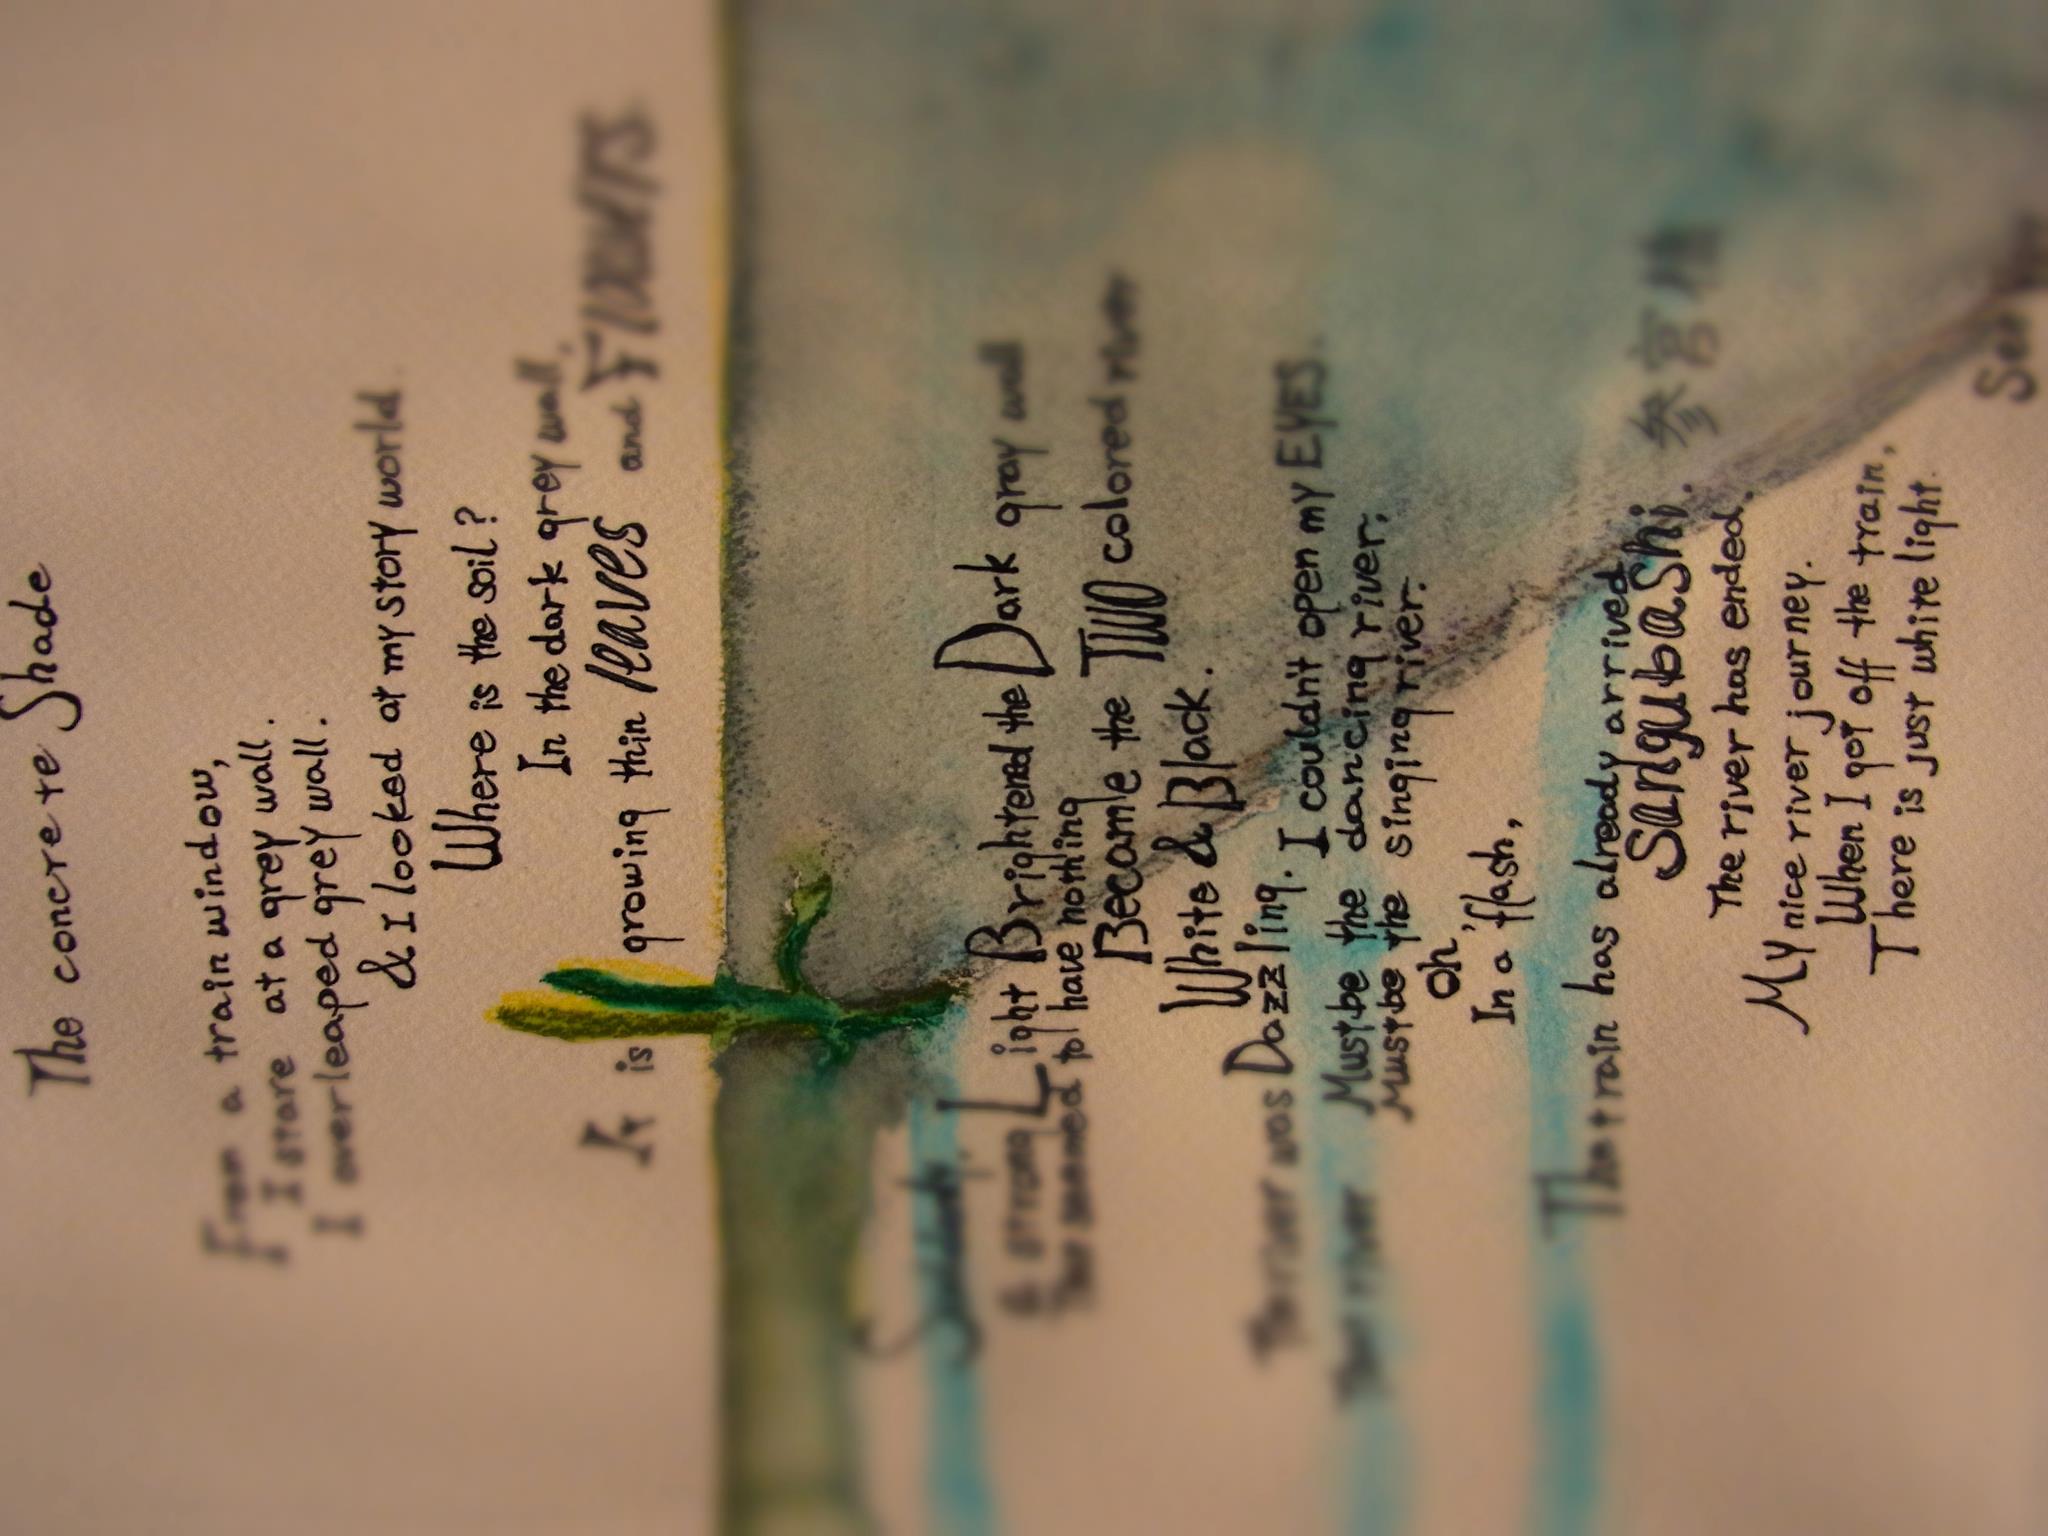 The concrete Shade
From a train window,
I stare at a grey wall.
I overleaped grey wall.
& I looked at my story world.
Where is the soil?
In the dark grey wall,
It is growing thin leaves and
Suddenly,
a strong Light Brightened the Dark gray wall
seemed to have nothing
Became the TWO colored river
White & Black.
The river was Dazzling. I couldn't open my EYES.
The river Must be the dancing river.
Must be the singing river.
Oh,
In a flash,
The train has already arrived
Sangubashi. 参宮橋
The river has ended.
My nice river journey.
When I got off the train,
There is just white light.